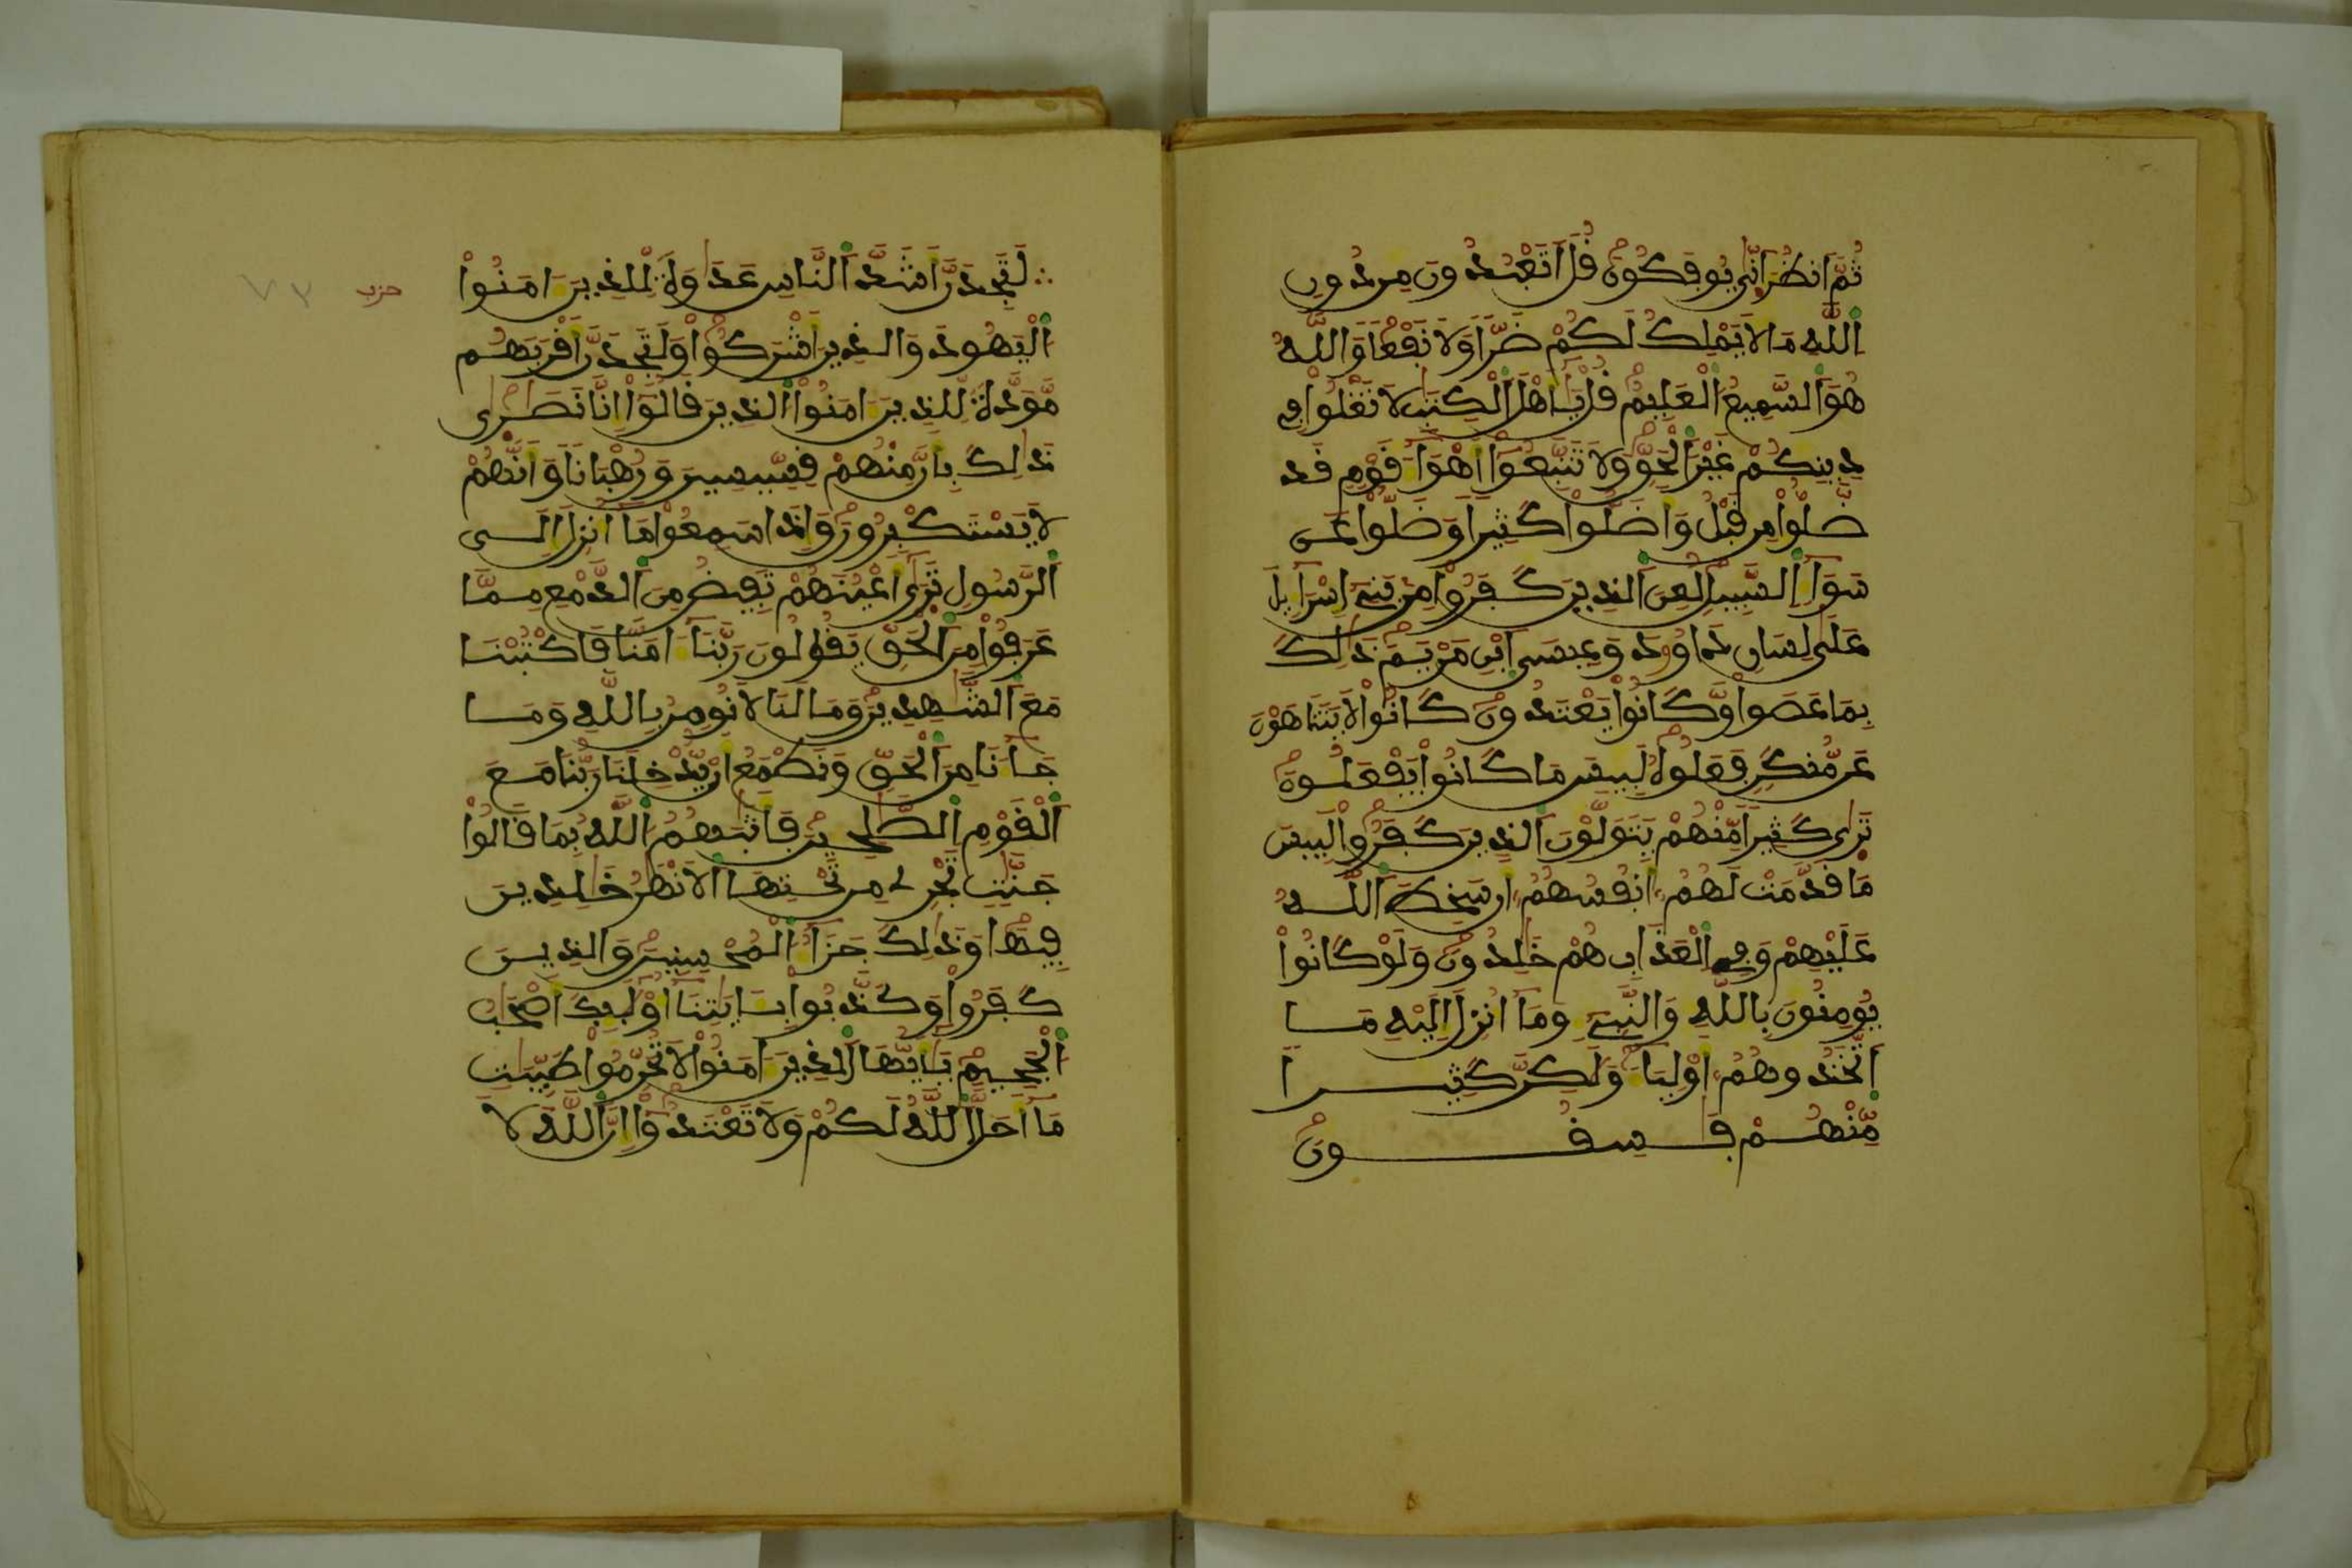 ثُمَّ انظُرَ انّٜي يُوفَكُونَ قُلَ اتَعْبُدُونَ مِن دُونِ
اِللَّهِ مَا لَا يَمْلِكُ لَكُمْ ضَرّاً وَلَا نَفْعاً وَاللَّهُ
هُوَ اَلسَّمِيعُ اُلْعَلِيمُ قُلْ يَٰأَهْلَ اَلْكِتَٰبِ لَا تَغْلُواْ فِي
دِينِكُمْ غَيْرَ اَلْحَقِّ وَلَا تَتَّبِعُوٓاْ أَهْوَآءَ قَوْمٍ قَد
ضَّلُّواْ مِن قَبْلُ وَأَضَلُّواْ كَثِيراً وَضَلُّواْ عَن
سَوَآءِ اِلسَّبِيلِ لُعِنَ اَلذِينَ كَفَرُواْ مِنۢ بَنِيٓ إِسْرَآءِيلَ
عَلَىٰ لِسَانِ دَاوُۥدَ وَعِيسَى اَبْنِ مَرْيَمَ ذَٰلِكَ
بِمَا عَصَواْ وَّكَانُواْ يَعْتَدُونَ كَانُواْ لَا يَتَنَاهَوْنَ
عَن مُّنكَرٍ فَعَلُوهُ لَبِيسَ مَا كَانُواْ يَفْعَلُونَ
تَرٜىٰ كَثِيراً مِّنْهُمْ يَتَوَلَّوْنَ اَلذِينَ كَفَرُواْ لَبِيسَ
مَا قَدَّمَتْ لَهُمُۥٓ أَنفُسُهُمُۥٓ أَن سَخِطَ اَللَّهُ
عَلَيْهِمْ وَفِي اِلْعَذَابِ هُمْ خَٰلِدُونَ وَلَوْ كَانُواْ
يُومِنُونَ بِاللَّهِ وَالنَّبِيٓءِ وَمَآ أُنزِلَ إِلَيْهِ مَا
اَتَّخَذُوهُمُۥٓ أَوْلِيَآءَ وَلَٰكِنَّ كَثِيراً
مِّنْهُمْ فَٰسِقُونَ
لَتَجِدَنَّ أَشَدَّ اَلنَّاسِ عَدَٰوَةً لِّلذِينَ ءَامَنُواْ
اُلْيَهُودَ وَالذِينَ أَشْرَكُواْ وَلَتَجِدَنَّ أَقْرَبَهُم
مَّوَدَّةً لِّلذِينَ ءَامَنُواْ اُلذِينَ قَالُوٓاْ إِنَّا نَصَٰرٜىٰ
ذَٰلِكَ بِأَنَّ مِنْهُمْ قِسِّيسِينَ وَرُهْبَاناً وَأَنَّهُمْ
لَا يَسْتَكْبِرُونَ وَإِذَا سَمِعُواْ مَآ أُنزِلَ إِلَى
اَلرَّسُولِ تَرٜىٰٓ أَعْيُنَهُمْ تَفِيضُ مِنَ اَلدَّمْعِ مِمَّا
عَرَفُواْ مِنَ اَلْحَقِّ يَقُولُونَ رَبَّنَآ ءَامَنَّا فَاكْتُبْنَا
مَعَ اَلشَّٰهِدِينَ وَمَا لَنَا لَا نُومِنُ بِاللَّهِ وَمَا
جَآءَنَا مِنَ اَلْحَقِّ وَنَطْمَعُ أَن يُّدْخِلَنَا رَبُّنَا مَعَ
اَلْقَوْمِ اِلصَّٰلِحِينَ فَأَثَٰبَهُمُ اُللَّهُ بِمَا قَالُواْ
جَنَّٰتٍ تَجْرِي مِن تَحْتِهَا اَلَانْهَٰرُ خَٰلِدِينَ
فِيهَا وَذَٰلِكَ جَزَآءُ اُلْمُحْسِنِينَ وَالذِينَ
كَفَرُواْ وَكَذَّبُواْ بِـَٔايَٰتِنَآ أُوْلَٰٓئِكَ أَصْحَٰبُ
اُلْجَحِيمِ يَٰأَيُّهَا اَلذِينَ ءَامَنُواْ لَا تُحَرِّمُواْ طَيِّبَٰتِ
مَآ أَحَلَّ اَللَّهُ لَكُمْ وَلَا تَعْتَدُوٓاْ إِنَّ اَللَّهَ لَا
حزب